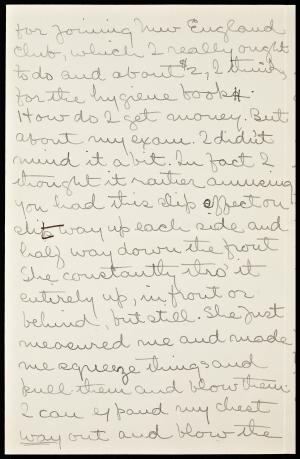 for joining New England
Club, which I really ought
to do and about $2, I think
for the hygiene book.
How do I get money. But
about my exam. I didn't
mind it a bit. In fact I
thought it rather amusing
you had this slip effect on
slip way up each side and
half way down the front
She constantly tho' it
entirely up, in front or
behind, but still. She just
measured me and made
me squeeze things and
pull them and blow them
I can expand my chest
way out and blow the